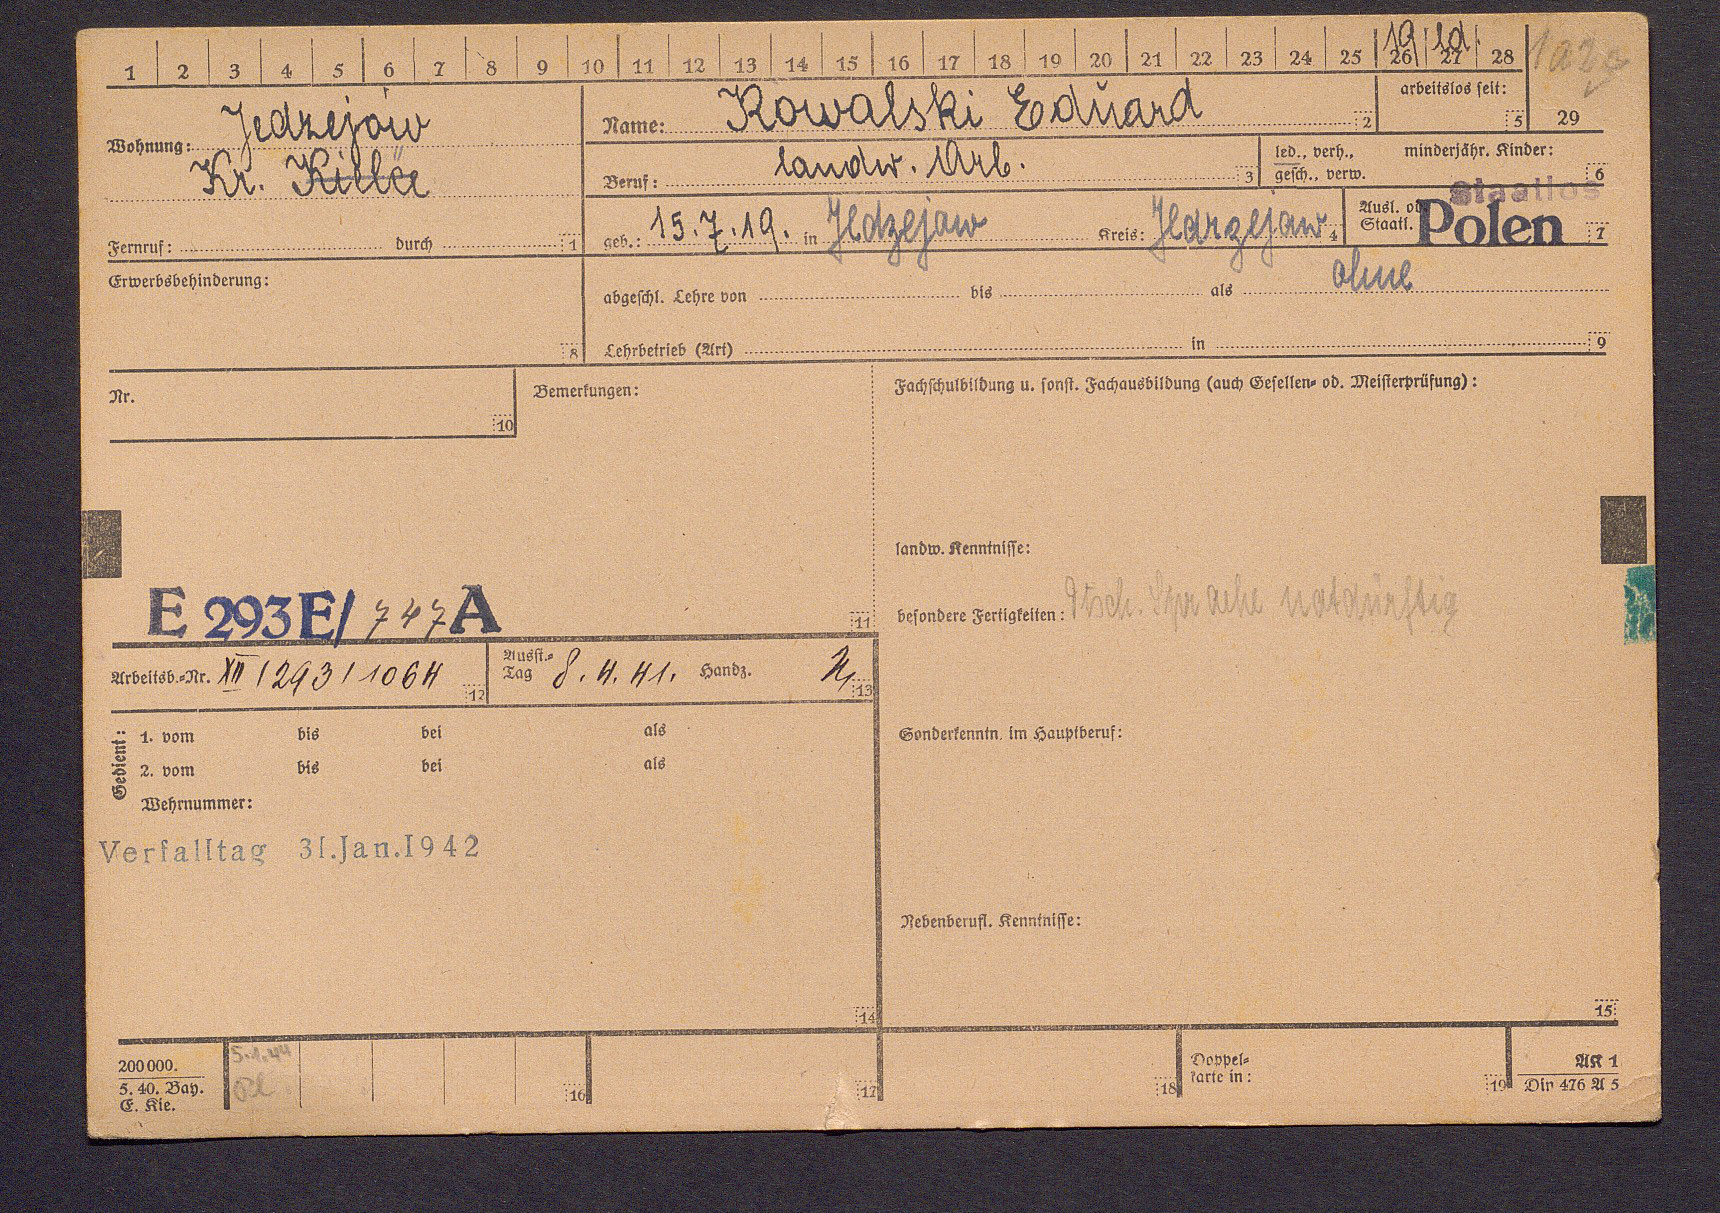 1 2 3 4 5 6 7 8 9 10 11 12 13 14 15 16 17 18 19 20 21 22 23 24 25 26 27 28
19 1d. 1a2c
Wohnung: Jedzejów
Kr. Kielce
Fernruf: durch 1
Name: Kowalski Eduard 2
arbeitslos seit: 5
29
Beruf: landw. Arb. 3
led., verh., gesch., verw.
minderjähr. Kinder: 6
geb.: 15.7.19. in Jedzejaw Kreis: Jedrzejaw 4
Ausl. od. Staatl. Staatlos Polen 7
Erwerbsbehinderung: 8
abgeschl. Lehre von bis als ohne
Lehrbetrieb (Art) in 9
Nr. 10
Bemerkungen:
Fachschulbildung u. sonst. Fachausbildung (auch Gesellen- od. Meisterprüfung):
landw. Kenntnisse:
E 293E/747A 11
besondere Fertigkeiten: Dtsch. Sprache notdürftig
Arbeitsb.-Nr. XII/293/1064 12
Ausst.-Tag 8.4.41. Handz. 13
Gedient: 1. vom bis bei als
2. vom bis bei als
Wehrnummer:
Sonderkenntn. im Hauptberuf:
Verfalltag 3I.Jan.I942
Nebenberufl. Kenntnisse:
14
15
200000.
5. 40. Bay.
E. Kie.
5.1.44
16 17 18
Doppelkarte in: 19
AK 1
Din 476 A 5